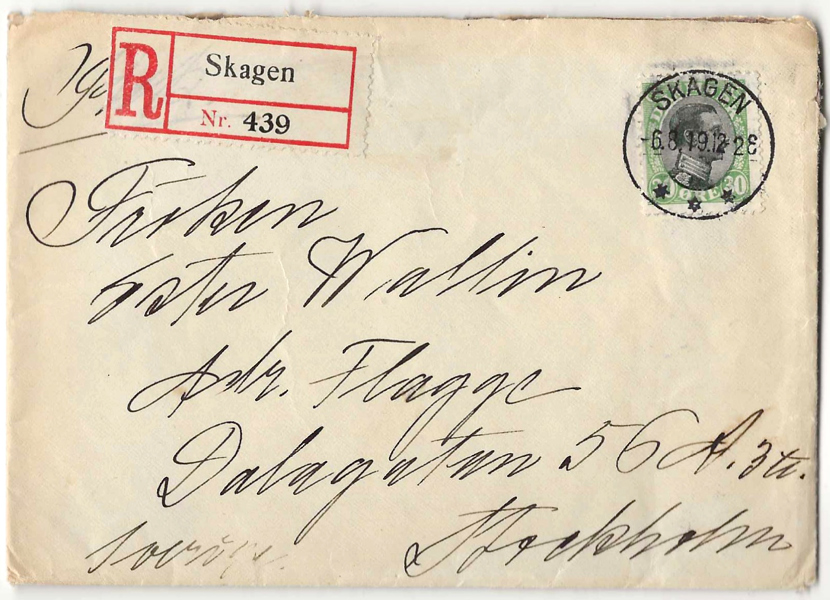 R Skagen
Nr. 439
SKAGEN
-6.8.19.12-2E
30 ØRE 30
Fröken
Ester Wallin
Adr. Flagge
Dalagatan 56 A. 3 tr.
Stockholm